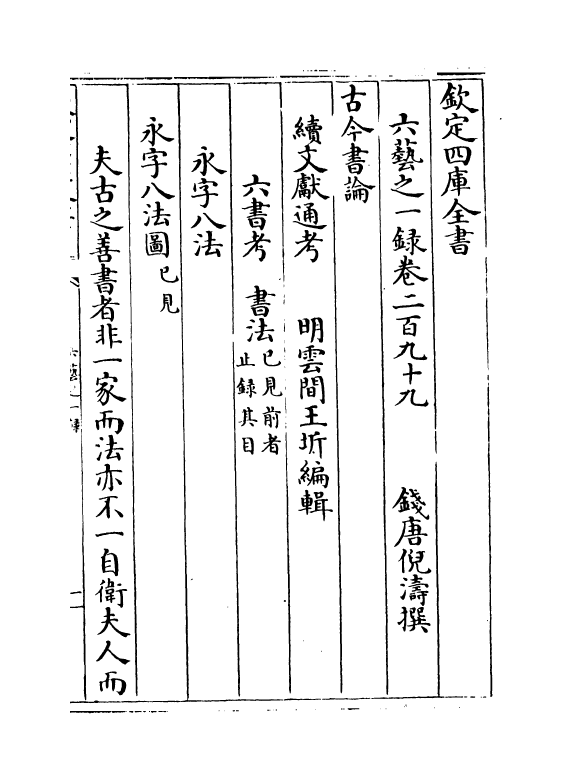 欽定四庫全書
六藝之一録卷二百九十九 錢唐倪濤撰
古今書論
續文獻通考 明雲間王圻編輯
六書考 書法已見前者止錄其目
永字八法
永字八法圖已見
夫古之善書者非一家而法亦不一自衛夫人而
六藝之一録